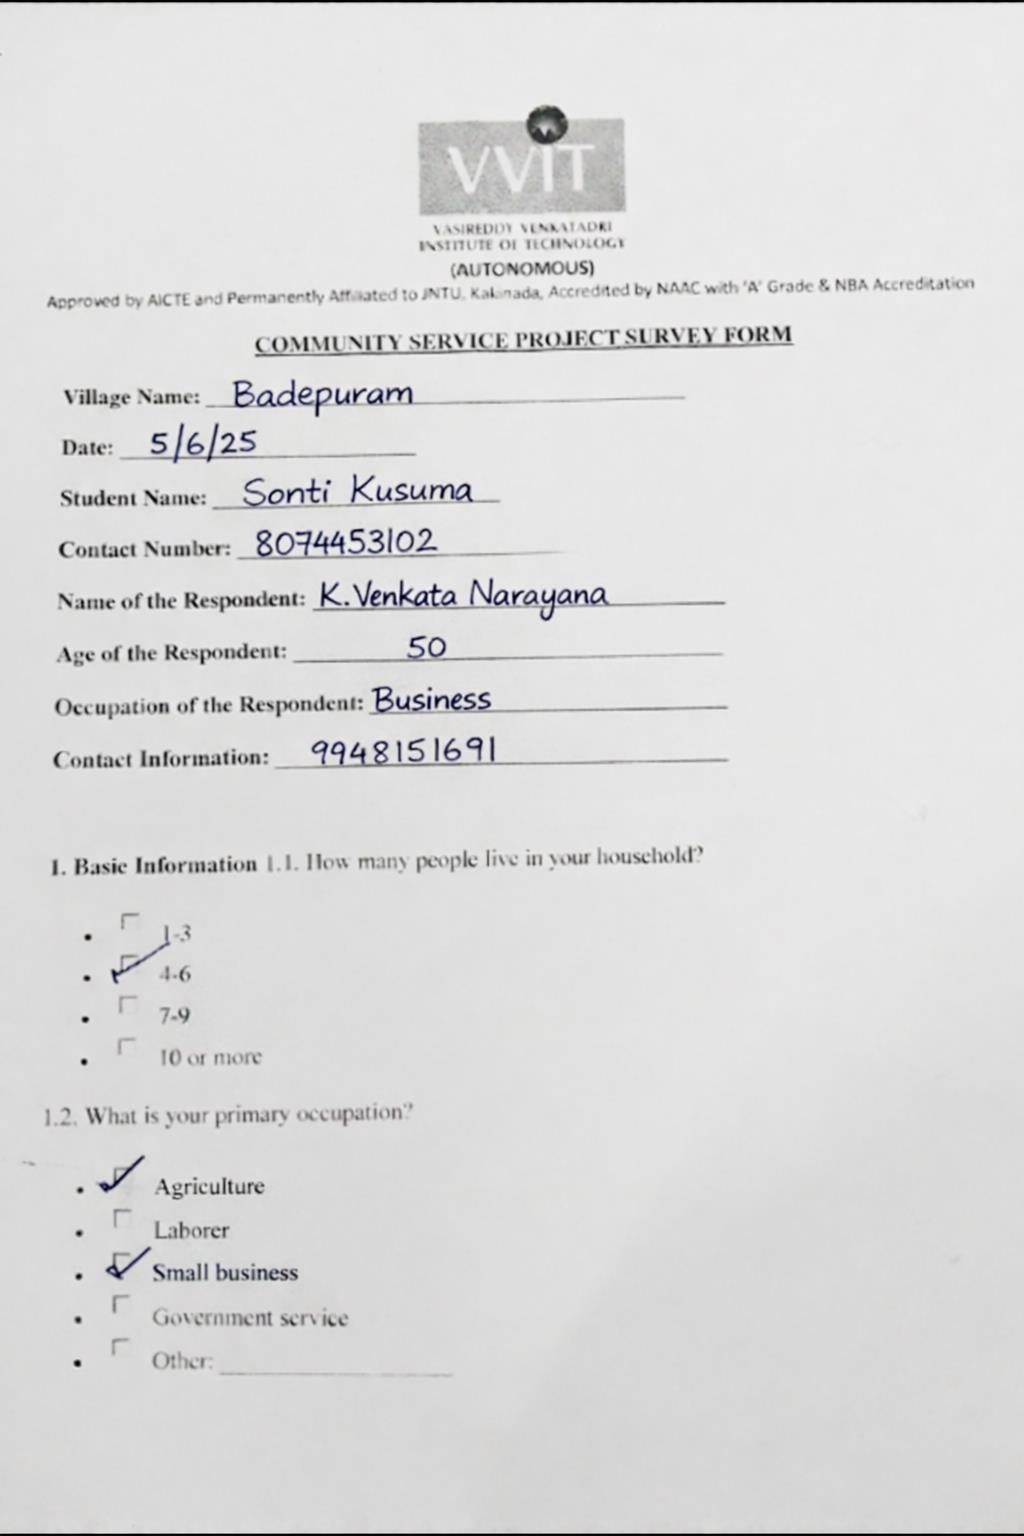 VVIT
VASIREDDY VENKATADRI
INSTITUTE OF TECHNOLOGY
(AUTONOMOUS)
Approved by AICTE and Permanently Affiliated to JNTU, Kakinada, Accredited by NAAC with 'A' Grade & NBA Accreditation
COMMUNITY SERVICE PROJECT SURVEY FORM
Village Name: Badepuram
Date: 5/6/25
Student Name: Sonti Kusuma
Contact Number: 8074453102
Name of the Respondent: K.Venkata Narayana
Age of the Respondent: 50
Occupation of the Respondent: Business
Contact Information: 9948151691
1. Basic Information 1.1. How many people live in your household?
• 1-3
• ✓ 4-6
• 7-9
• 10 or more
1.2. What is your primary occupation?
• ✓ Agriculture
• Laborer
• ✓ Small business
• Government service
• Other: